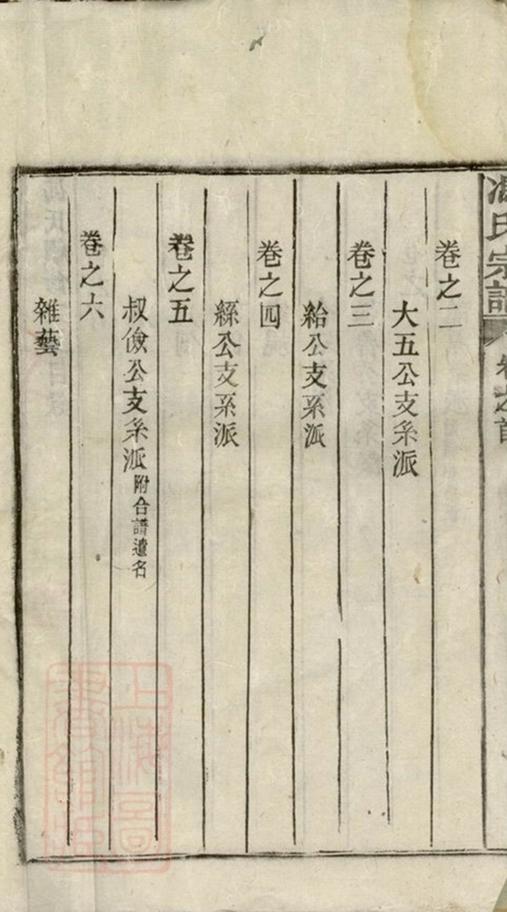 馮氏宗譜 卷之首
卷之二
大五公支系派
卷之三
給公支系派
卷之四
繇公支系派
卷之五
叔儉公支系派附合譜遺名
卷之六
雜藝
上海圖書館藏